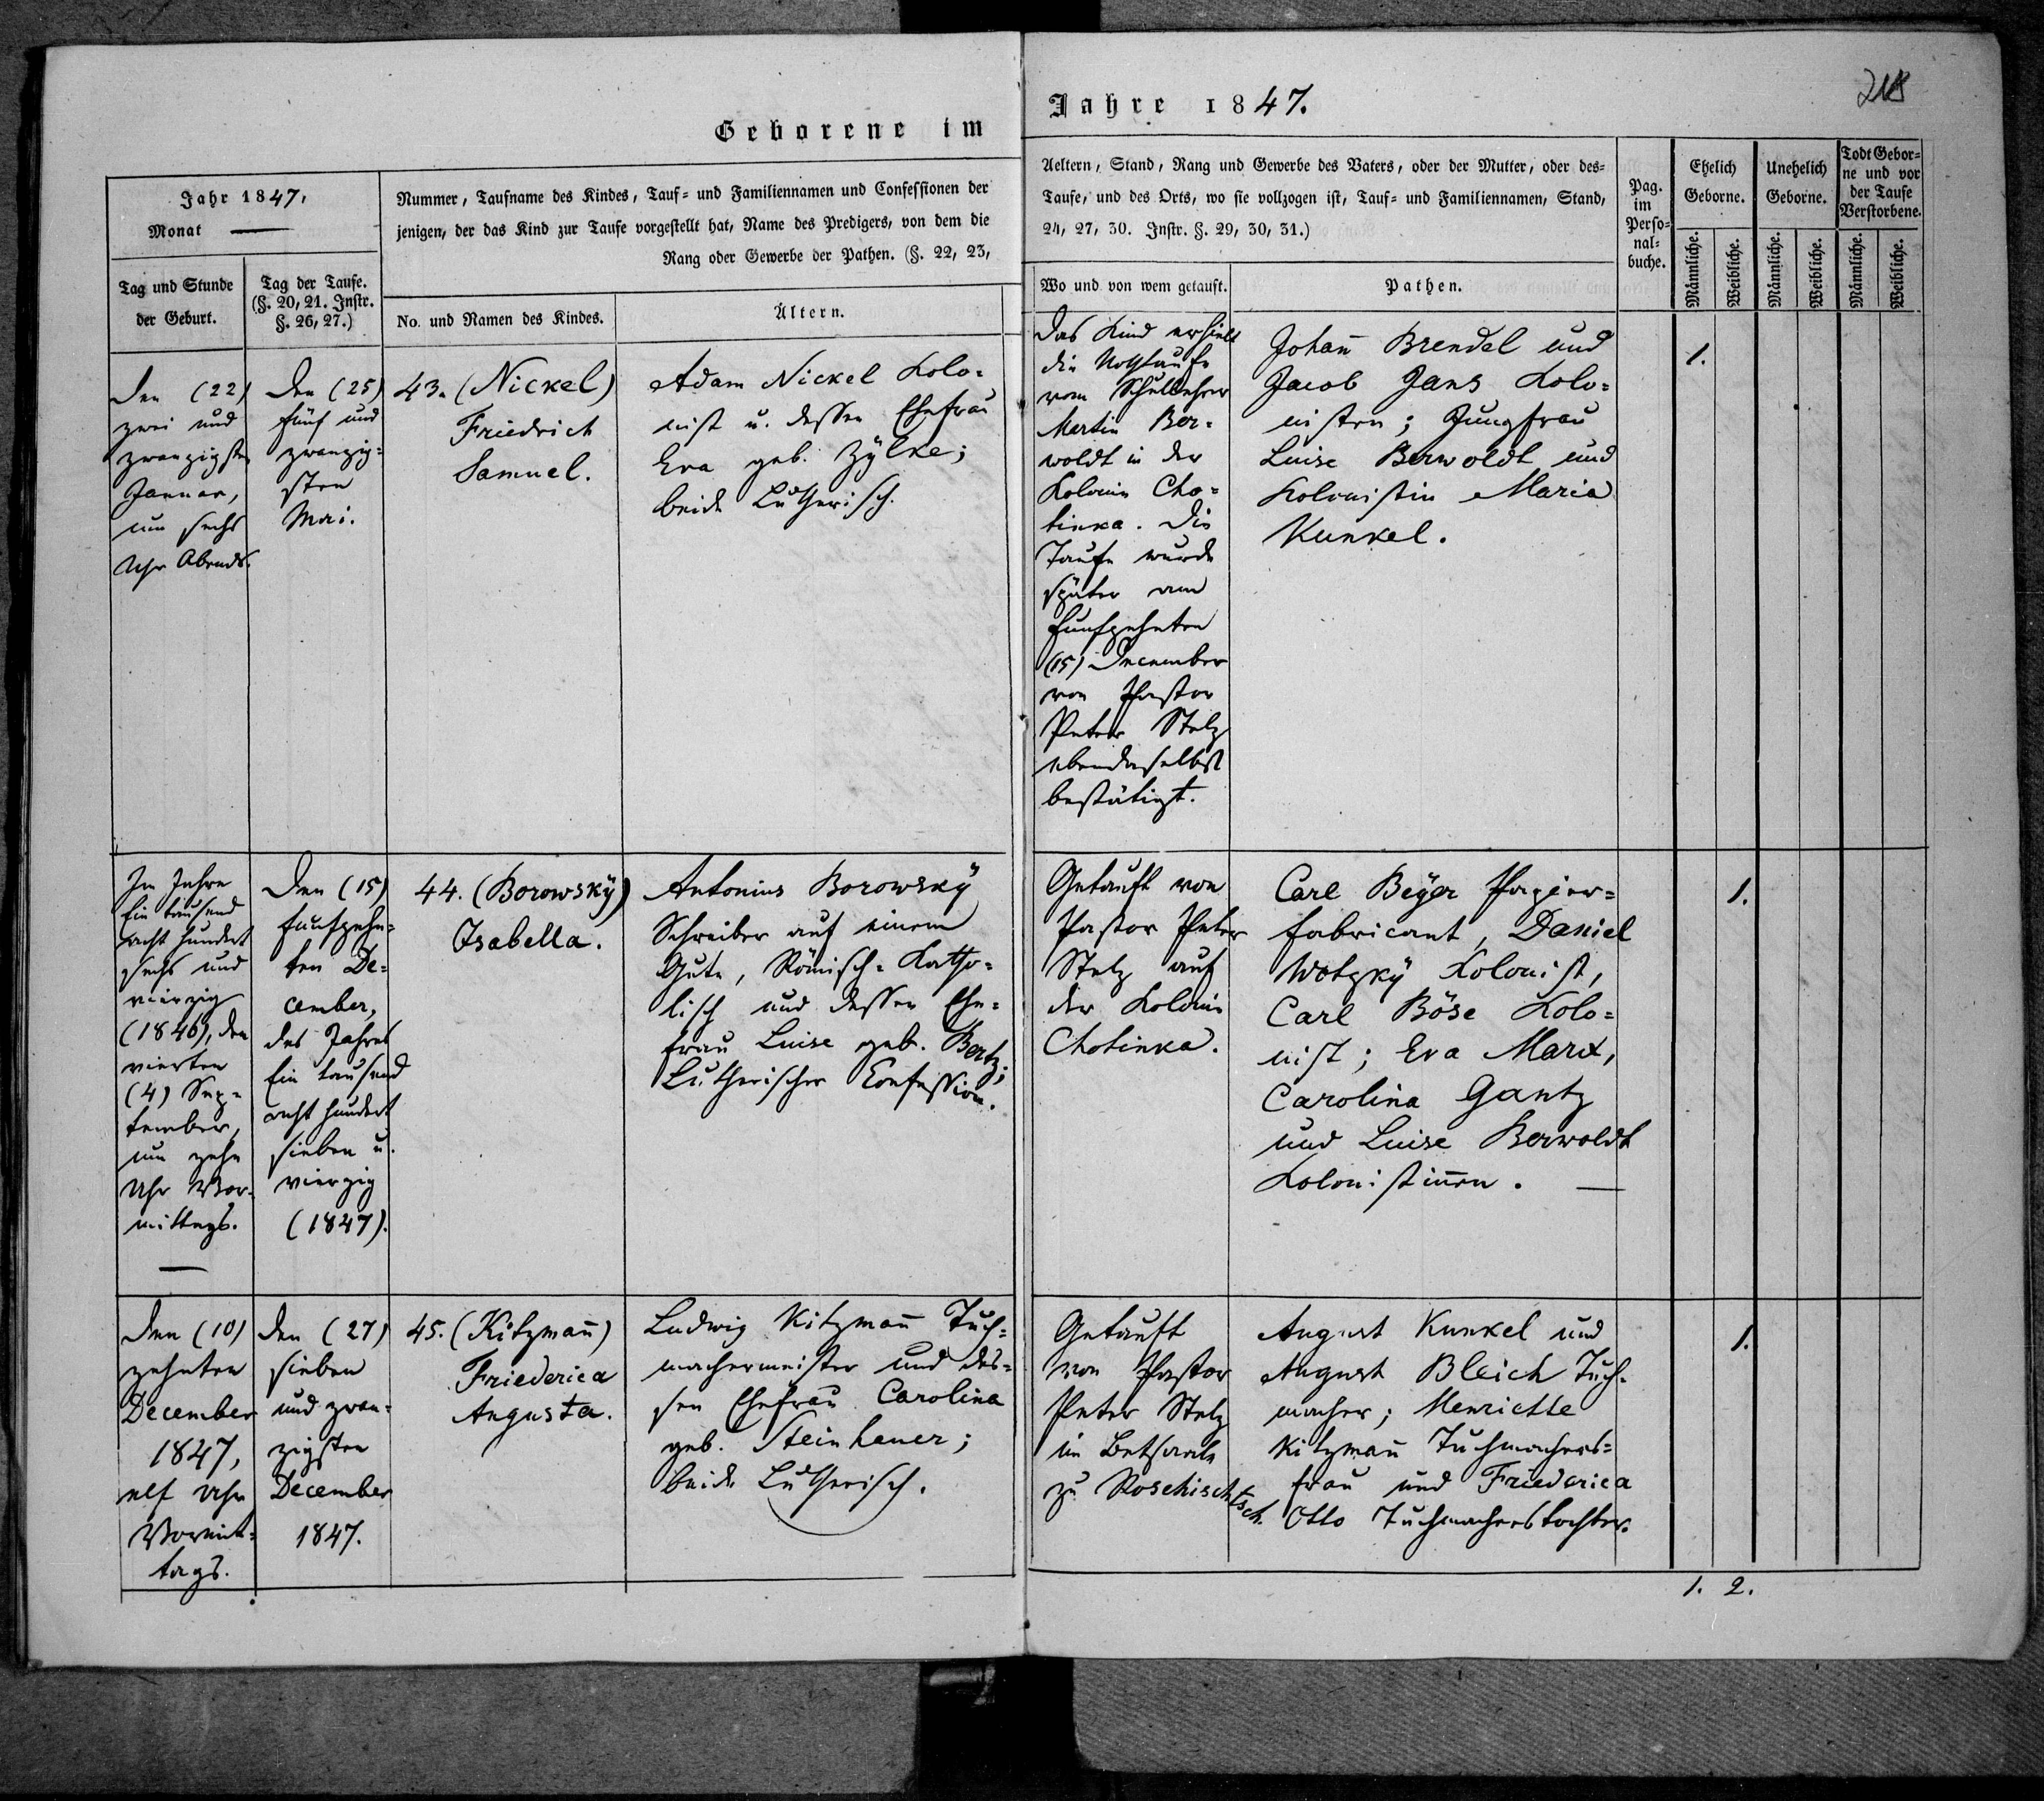 218
Geborene im
Jahre 1847.
Jahr 1847,
Monat
Tag und Stunde
der Geburt.
Tag der Taufe.
(§. 20, 21. Instr.
§. 26, 27.)
Nummer, Taufname des Kindes, Tauf- und Familiennamen und Confessionen der
jenigen, der das Kind zur Taufe vorgestellt hat, Name des Predigers, von dem die
Rang oder Gewerbe der Pathen. (§. 22, 23,
No. und Namen des Kindes.
Ältern.
Aeltern, Stand, Rang und Gewerbe des Vaters, oder der Mutter, oder des-
Taufe, und des Orts, wo sie vollzogen ist, Tauf- und Familiennamen, Stand,
24, 27, 30. Instr. §. 29, 30, 31.)
Wo und von wem getauft.
Pathen.
Pag.
im
Perso-
nal-
buche.
Ehelich
Geborne.
Unehelich
Geborne.
Todt Gebor-
ne und vor
der Taufe
Verstorbene.
Männliche.
Weibliche.
Männliche.
Weibliche.
Männliche.
Weibliche.
Den (22)
zwei und
zwanzigsten
Januar,
um sechs
Uhr Abends.
Den (25)
fünf und
zwanzig-
sten
Mai.
43. (Nickel)
Friedrich
Samuel.
Adam Nickel Kolo-
nist u. dessen Ehefrau
Eva geb. Zÿlke;
beide Lutherisch.
Das Kind erhielt
die Nothtaufe
vom Schullehrer
Martin Ber-
woldt in der
Kolonie Cho-
tinka. Die
Taufe wurde
später am
fünfzehnten
(15) December
von Pastor
Peter Stelz
ebendaselbst
bestätigt.
Johan̄ Brendel und
Jacob Jans Kolo-
nisten; Jungfrau
Luise Berwoldt und
Kolonistin Maria
Kunkel.
1.
Im Jahre
Ein tausend
acht hundert
sechs und
vierzig
(1846), den
vierten
(4) Sep-
tember,
um zehn
Uhr Vor-
mittags.
Den (15)
fünfzehn-
ten De-
cember,
des Jahres
Ein tausend
acht hundert
sieben u.
vierzig
(1847).
44. (Borowskÿ)
Isabella.
Antonius Borowskÿ
Schreiber auf einem
Gute, Römisch-Katho-
lisch und dessen Ehe-
frau Luise geb. Bertz;
Lutherischer Confession.
Getauft von
Pastor Peter
Stelz auf
der Kolonie
Chotinka.
Carl Beÿer Papier-
fabricant, Daniel
Wotzkÿ Kolonist,
Carl Böse Kolo-
nist; Eva Marx,
Carolina Gantz
und Luise Berwoldt
Kolonistin̄en.
1.
Den (10)
zehnten
December
1847,
elf Uhr
Vormit-
tags.
Den (27)
sieben
und zwan-
zigsten
December
1847.
45. (Kitzman̄)
Friederica
Augusta.
Ludwig Kitzman̄ Tuch-
machermeister und des-
sen Ehefrau Carolina
geb. Steinhauer;
beide Lutherisch.
Getauft
von Pastor
Peter Stelz
im Betsaale
zu Roschischtsch.
August Kunkel und
August Bleich Tuch-
macher; Henriette
Kitzman̄ Tuchmachers-
frau und Friederica
Otto Tuchmacherstochter.
1.
1. 2.